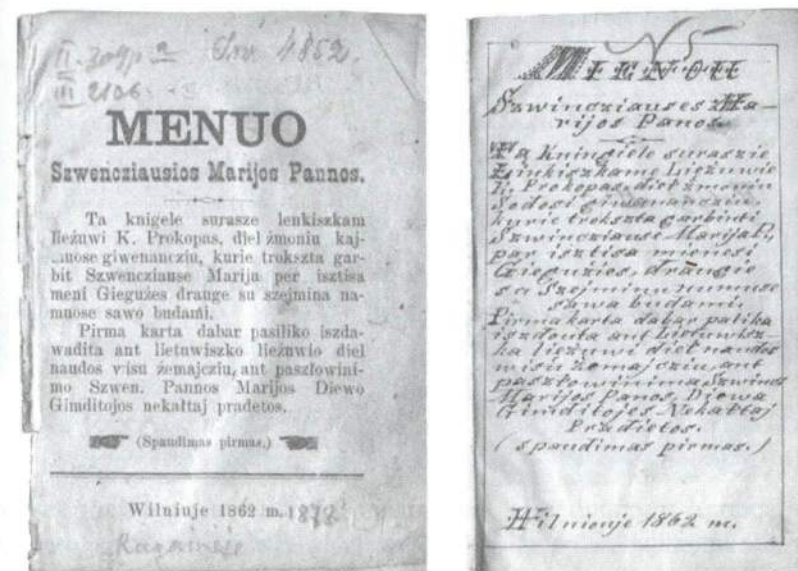 II. 3091 a
III 2106.
MENUO
Szwencziausios Marijos Pannos.
Ta knigele surasze lenkiszkam
liežuwi K. Prokopas, diel żmoniu kaj-
..uose giwenancziu, kurie trokszta gar-
bit Szwencziause Marija per isztisa
meni Giegużes drauge su szejmina na-
muose sawo budami.
Pirma karta dabar pasiliko iszda-
wadita ant lietuwiszko liežuwio diel
naudos wisu żemajcziu, ant paszłowini-
mo Szwen. Pannos Marijos Diewo
Gimditojos nekaltaj pradetos.
(Spaudimas pirmas.)
Wilniuje 1862 m. 1872
Ragainėje
N 5
MIENOU
Szwincziauses Ma-
rijos Panos.
Ta Kningiele suraszie
Linkiszkame Liezuwie
K. Prokopas, diel żmoniu
Sodosi giwenancziu,
kurie trokszta garbinti
Szwincziause Marija P.,
par isztisa mienesi
Gieguzies, draugie
su Szejminu numuse
sawa budami.
Pirma karta dabar palika
iszdouta ant Lietuwisz-
ka liezuwi diel naudos
wisu żemajcziu, ant
paszłowinima Szwinds
Marijos Panos, Diewa
Gimditojes Nekaltaj
Prdietos.
(spaudimas pirmas.)
Wilniouje 1862 m.